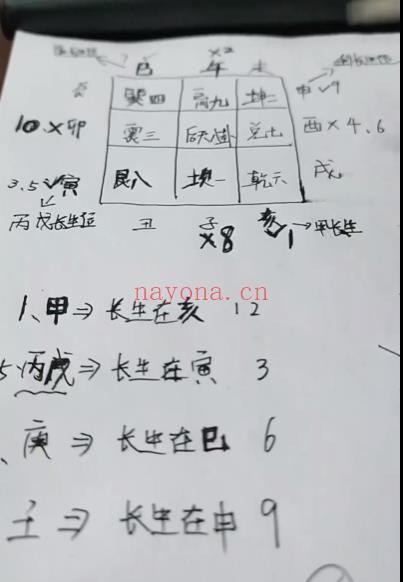 巳 午 ×2 未
巽四 离九 坤二 申 √9
10 × 卯 震三 后天八卦 兑七 酉 × 4、6
3.5 √ 寅 艮八 坎一 乾六 戌
丙戊长生位 丑 子 ×8 亥 √1 → 甲长生
nayona.cn
1、甲 ⇒ 长生在亥 12
5、丙戊 ⇒ 长生在寅 3
、庚 ⇒ 长生在巳 6
壬 ⇒ 长生在申 9